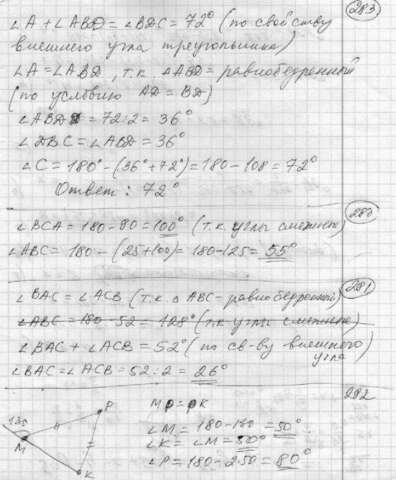 283
∠A + ∠ABD = ∠BDC = 72° (по свойству
внешнего угла треугольника)
∠A = ∠ABD, т.к. △ABD = равнобедренный
(по условию AD = BD)
∠ABD = 72:2 = 36°
∠DBC = ∠ABD = 36°
∠C = 180° - (36° + 72°) = 180 - 108 = 72°
Ответ: 72°
280
∠BCA = 180 - 80 = 100° (т.к. углы смежные)
∠ABC = 180 - (25 + 100) = 180 - 125 = 55°
281
∠BAC = ∠ACB (т.к. △ ABC - равнобедренный)
∠ABC = 180 - 52 = 128° (т.к. углы смежные)
∠BAC + ∠ACB = 52° (по св-ву внешнего
угла)
∠BAC = ∠ACB = 52:2 = 26°
282
P
M
K
MP = PK
∠M = 180 - = 50°
∠K = ∠M = 50°
∠P = 180 - 2·50 = 80°